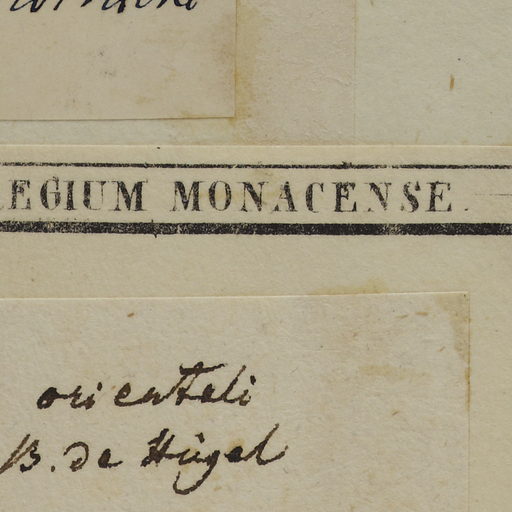 EGIUM MONACENSE.
orientali
B. de Hügel